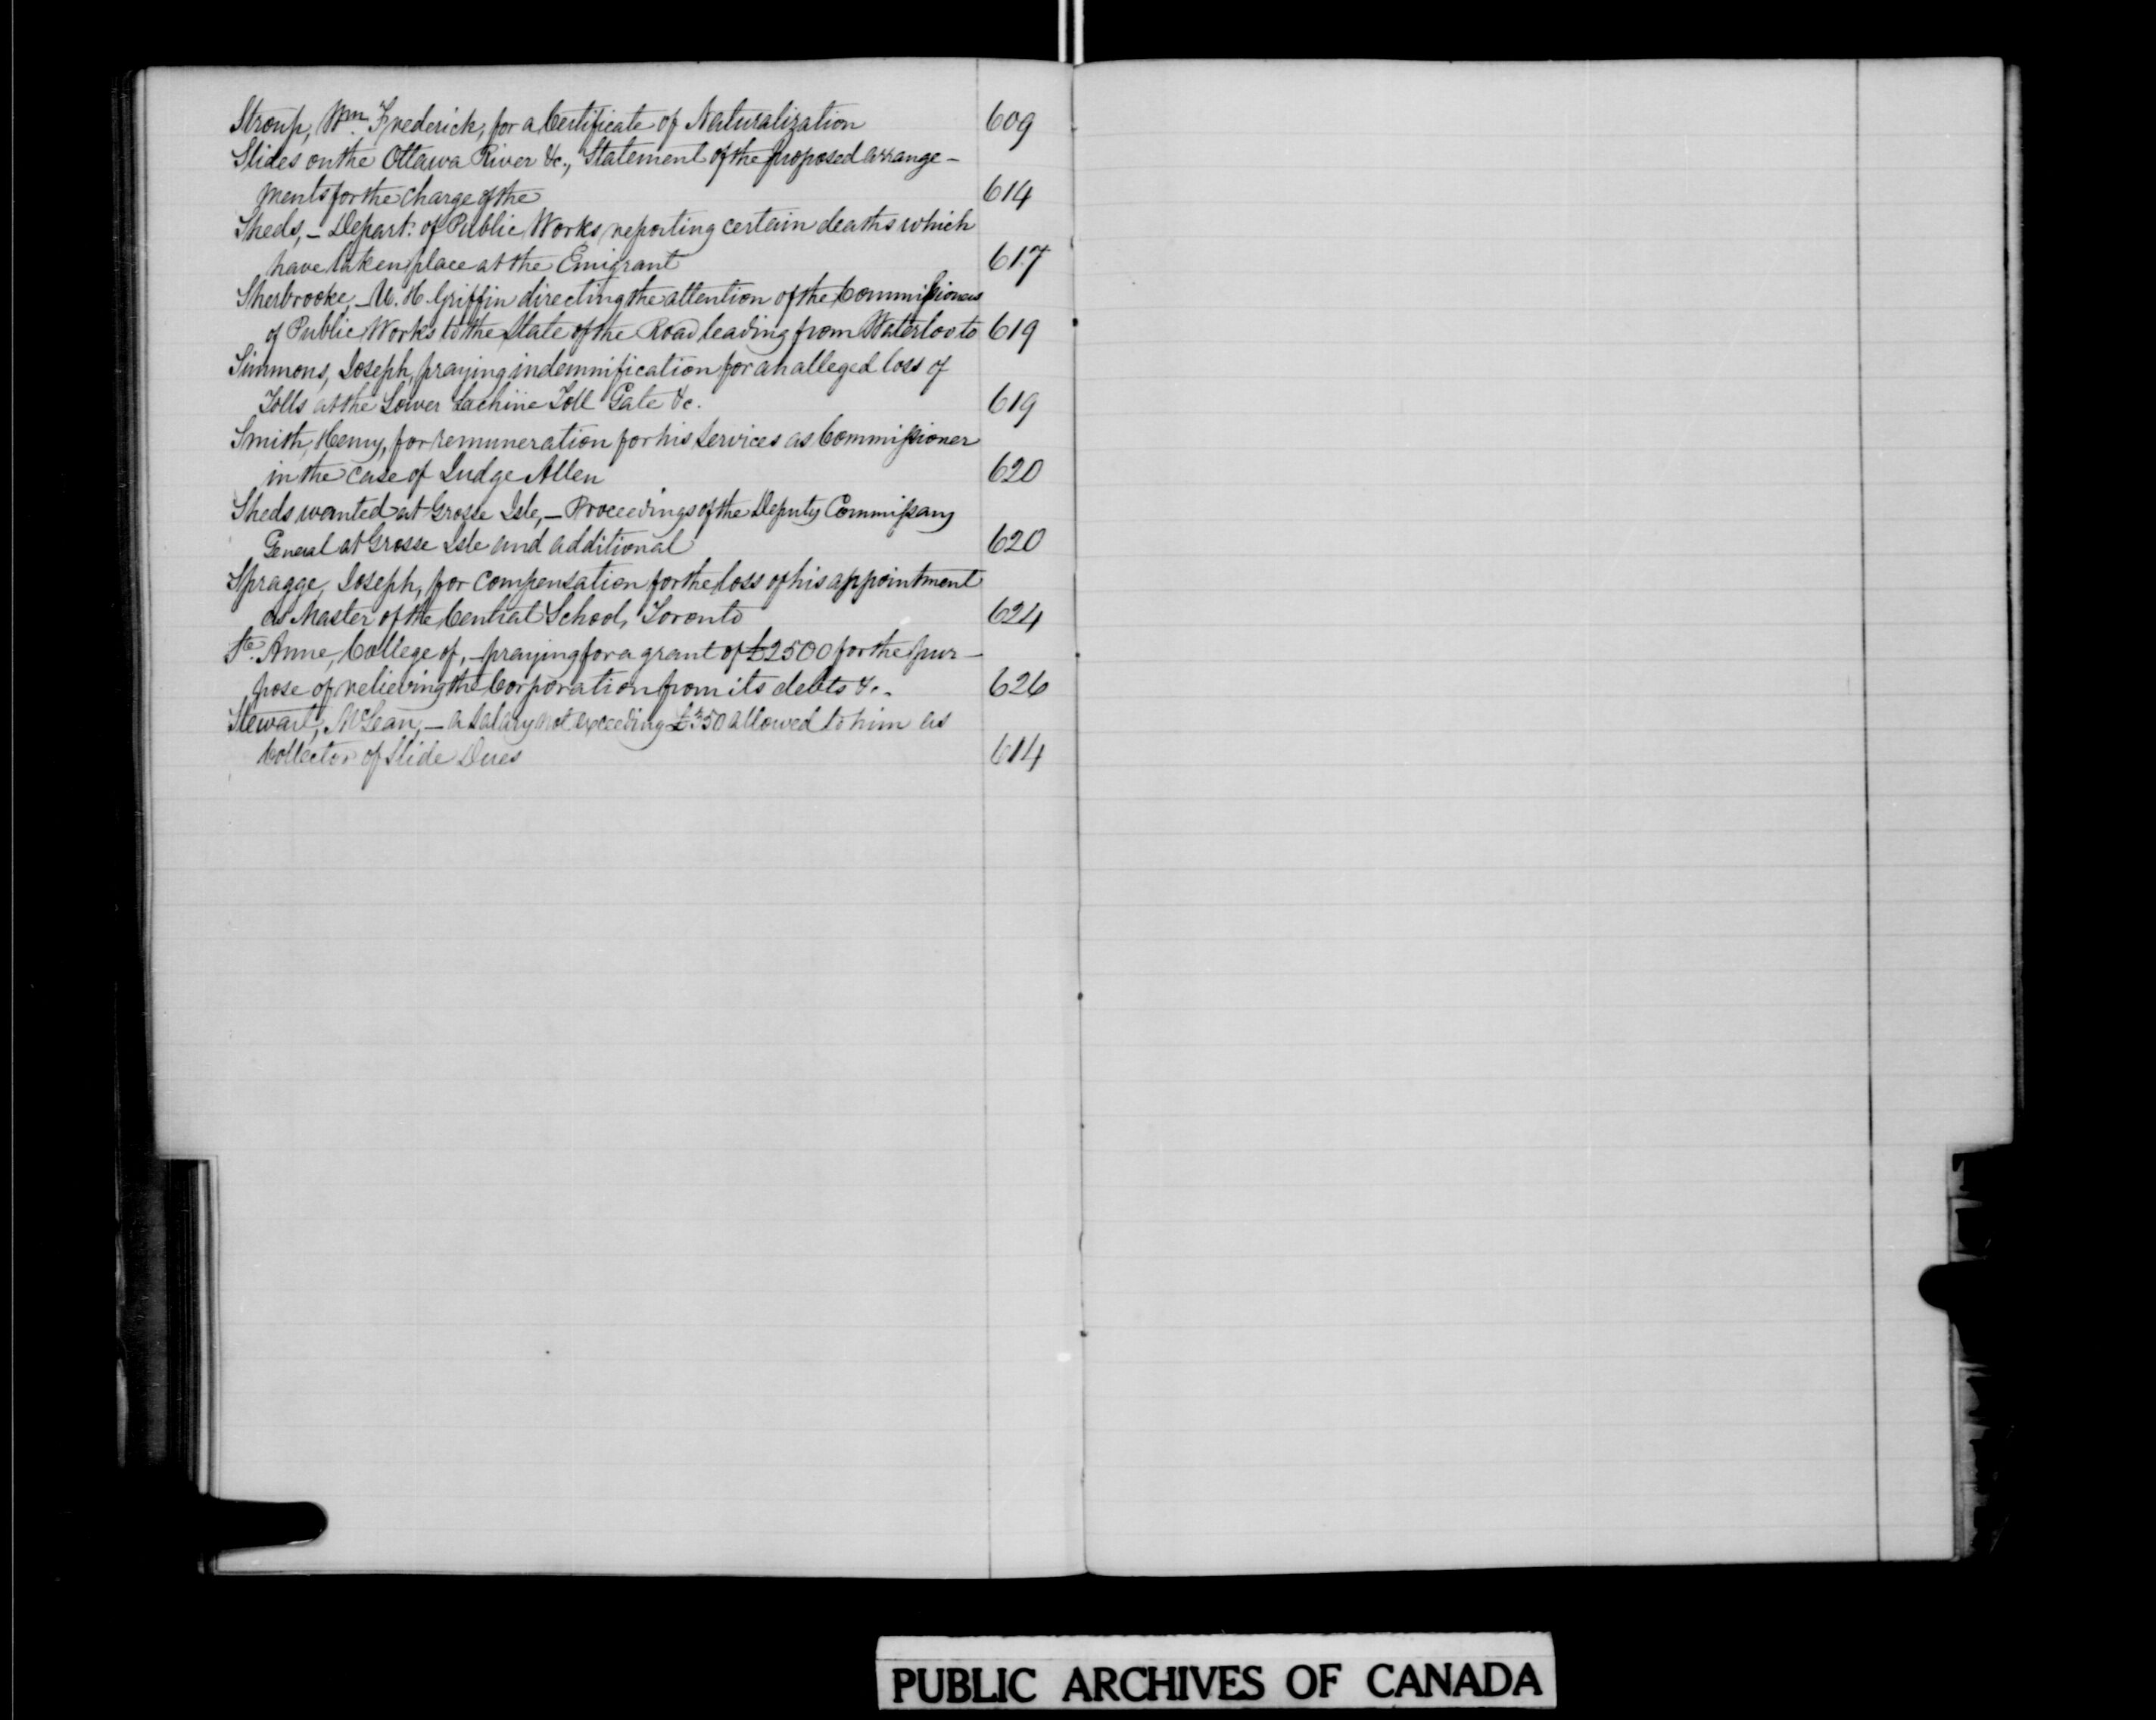 Stroup, Wm. Frederick, for a Certificate of Naturalization 609
Slides on the Ottawa River &c., Statement of the proposed arrange-
ments for the charge of the 614
Sheds, - Depart: of Public Works, reporting certain deaths which
have taken place at the Emigrant 617
Sherbrooke, - M. H. Griffin directing the attention of the Commissioners
of Public Works to the State of the Road leading from Waterloo to 619
Simmons, Joseph, praying indemnification for an alleged loss of
Tolls at the Lower Lachine Toll Gate &c. 619
Smith, Henry, for remuneration for his services as Commissioner
in the case of Judge Allen 620
Sheds wanted at Grosse Isle, - Proceedings of the Deputy Commissary
General at Grosse Isle and additional 620
Spragge, Joseph, for compensation for the loss of his appointment
as Master of the Central School, Toronto 624
Ste. Anne, College of, - praying for a grant of £2500 for the pur-
pose of relieving the Corporation from its debts &c. 626
Stewart, McLean, - a salary not exceeding £350 allowed to him as
Collector of Slide Dues 614
PUBLIC ARCHIVES OF CANADA